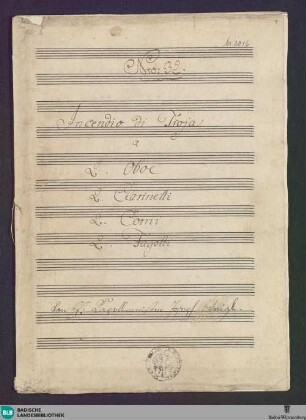 M. 2816
Nro: 32.
Incendio di Troja
a
2. Oboe
2. Clarinetti
2. Corni
2. Fagotti
BLB
BADISCHE
LANDESBIBLIOTHEK
Baden-Württemberg